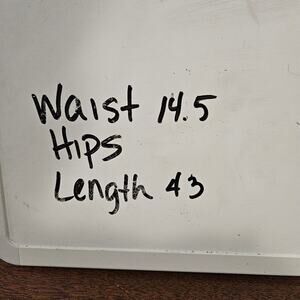 Waist 14.5
Hips
Length 43